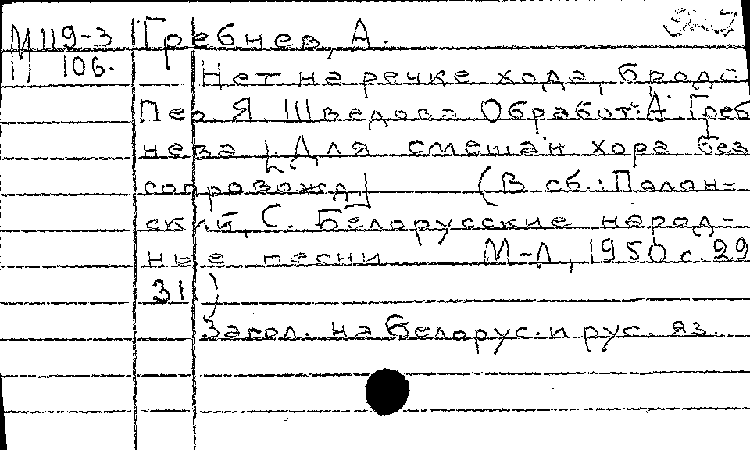 М 119-3 Гребнев, А.
106.
Нет на речке хода, брода
Пер. Я. Шведова Обработ. А. Греб
нева [Для смешан хора без
сопровожд.] (В сб.: Полон-
ский, С. Белорусские народ-
ные песни М-Л, 1950 с. 29
31)
Загол. на белорус. и рус. яз.